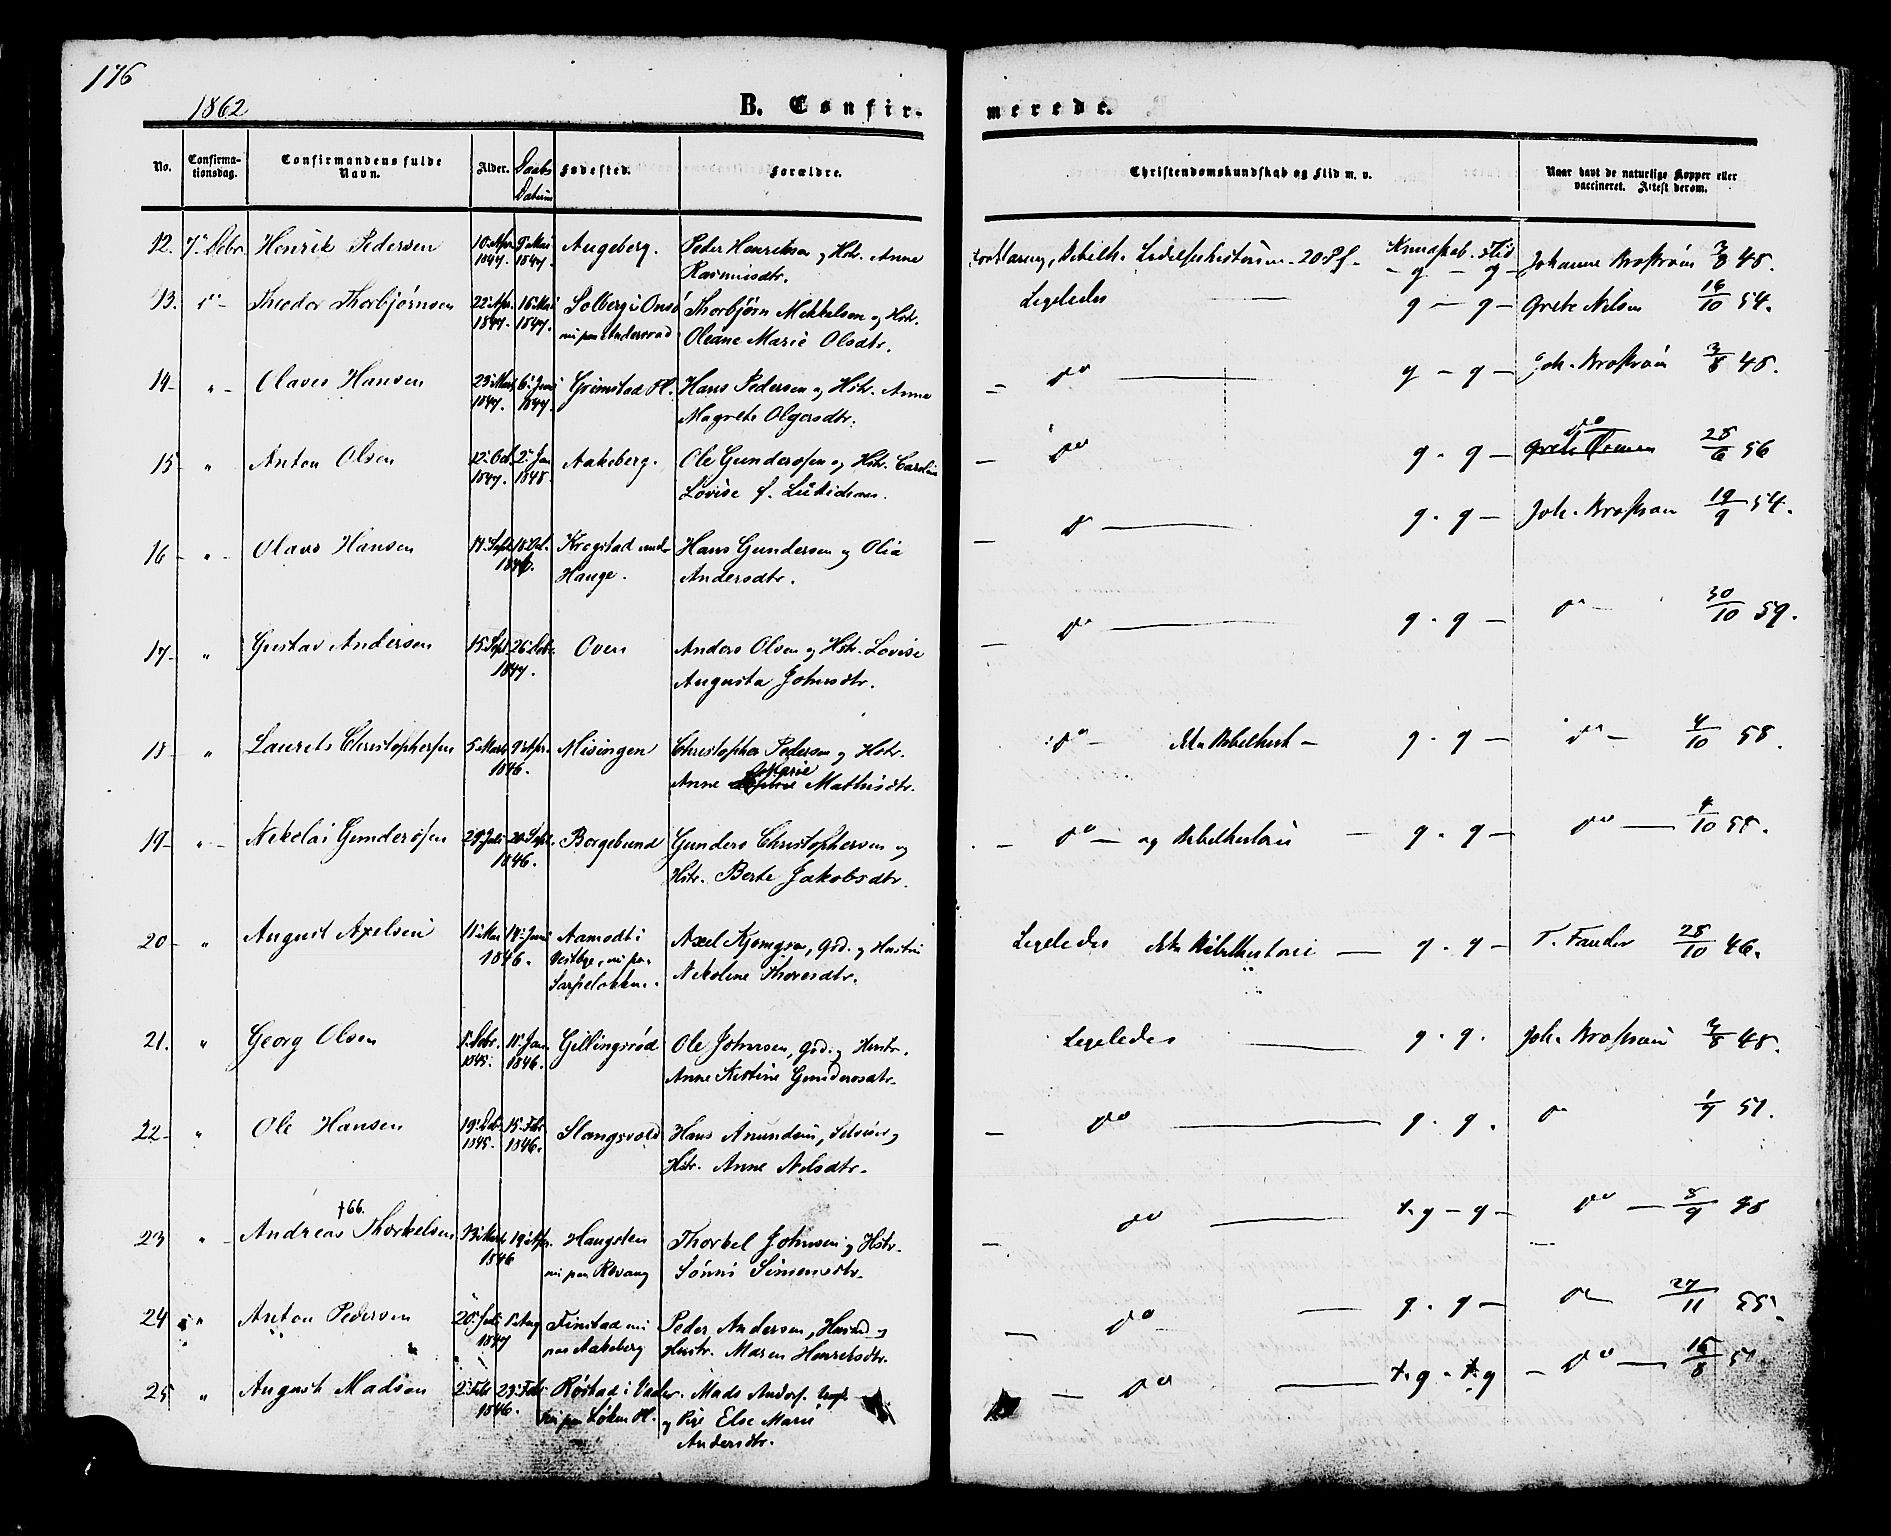 176
1862
B. Confir-
merede.
No. Confirma-tionsdag. Confirmandens fulde Navn. Alder. Daabs Datum Fødested. Forældre. Christendomskundskab og Flid m. v. Naar havt de naturlige Kopper eller vaccineret. Attest derom.
12. 7de Debr. Henrik Pedersen 10. Apr. 1847. 9. Mai 1847. Augeberg. Peder Henriksen og Hstr. Anne Rasmusdtr. Forklaring, 20 Pf. Kundskab - g - Flid g - Johanne 3/8 48.
13. do - Theodor Thorbjørnsen 22. Apr. 1847. 16. Mai 1847. Solberg i Onsø Thorbjørn Mekkelsen og Hstr. Oleane Marie Olsdtr. Ligeledes g - g - Grete Nilsen 16/10 54.
14 - " - Olaves Hansen 23. 1847. 6. Juni 1847. Grimstad Pl. Hans Pedersen og Hstr. Anne Magrete Olgersdtr. - do - g - g - Joh. 3/8 48.
15 - " Anton Olsen 12. Oct. 1847. 2. Jan 1848. Aakeberg. Ole Gundersen og Hstr. Caroline Lovise f. - do g - g - do 28/6 56
16 - " - Olavs Hansen 11. Sept. 18. Krogstad under Hauge. Hans Gundersen og Olia Andersdtr. - do - g - g - Joh. 19/9 54.
17 - " Gustav Andersen 15. Sept. 26. 1847. Oven Anders Olsen og Hstr. Lovise Augusta Johnsdtr. - do - g - g - do - 30/10 59.
18 - " Laurits Christophersen 5. Marts 9. Apr. 1846. Misingen Christopher Pedersen og Hstr. Anne Marie Mathisdtr. do - g - g - do - 4/10 58.
19 - " - Nikolai Gundersen 29. Juli 20. Sept. 1846. Borgebund Gunders Christophersen og Hstr. Berte Jakobsdtr. - do - og Bibelhistorie - g - g - do - 4/10 58.
20 - " August Axelsen 11. Mai 14. Juni 1846. Aamodt i Vestbye, nu paa Axel Gd. og Hustru Nikoline Thoresdtr. Ligeledes Bibelhistorie - g - g - T. Fander 28/10 46.
21. " Georg Olsen 5. Debr. 1845. 11. Jan. 1846. Gillingsrød Ole Johnsen, Gd. og Hustr. Anne Kistine Gundersdtr. Ligeledes - g - g. Joh. 3/8 48.
22 - " Ole Hansen 19. Debr. 1845. 15. Febr 1846. Slangsvold Hans Amundsen, Selveier og Hstr. Anne Nilsdtr. - do - g - g. do 1/9 51.
†66.
23 " - Andreas Thorkelsen 13. Marts 19. Apr. 1846 Haugsten nu paa Revaug Thorkel Johnsen og Hstr. Sønni Simensdtr. - do - t. g - g - do - 8/9 48
24 " Anton Pedersen 20. Juli 1. Aug 1847 Finstad nu paa Aakeberg Peder Andersen, Husmd og Hustr. Maren Henriksdtr. - do - g - g - do 27/11 55.
25 " August Madsen 2. Febr 23. Febr 1846. Røstad i Vaaler. nu paa Løken Pl. Mads Anders. Ungk. og Pige Else Marie Andersdtr. - do - t. g - t. g - do - 16/8 51